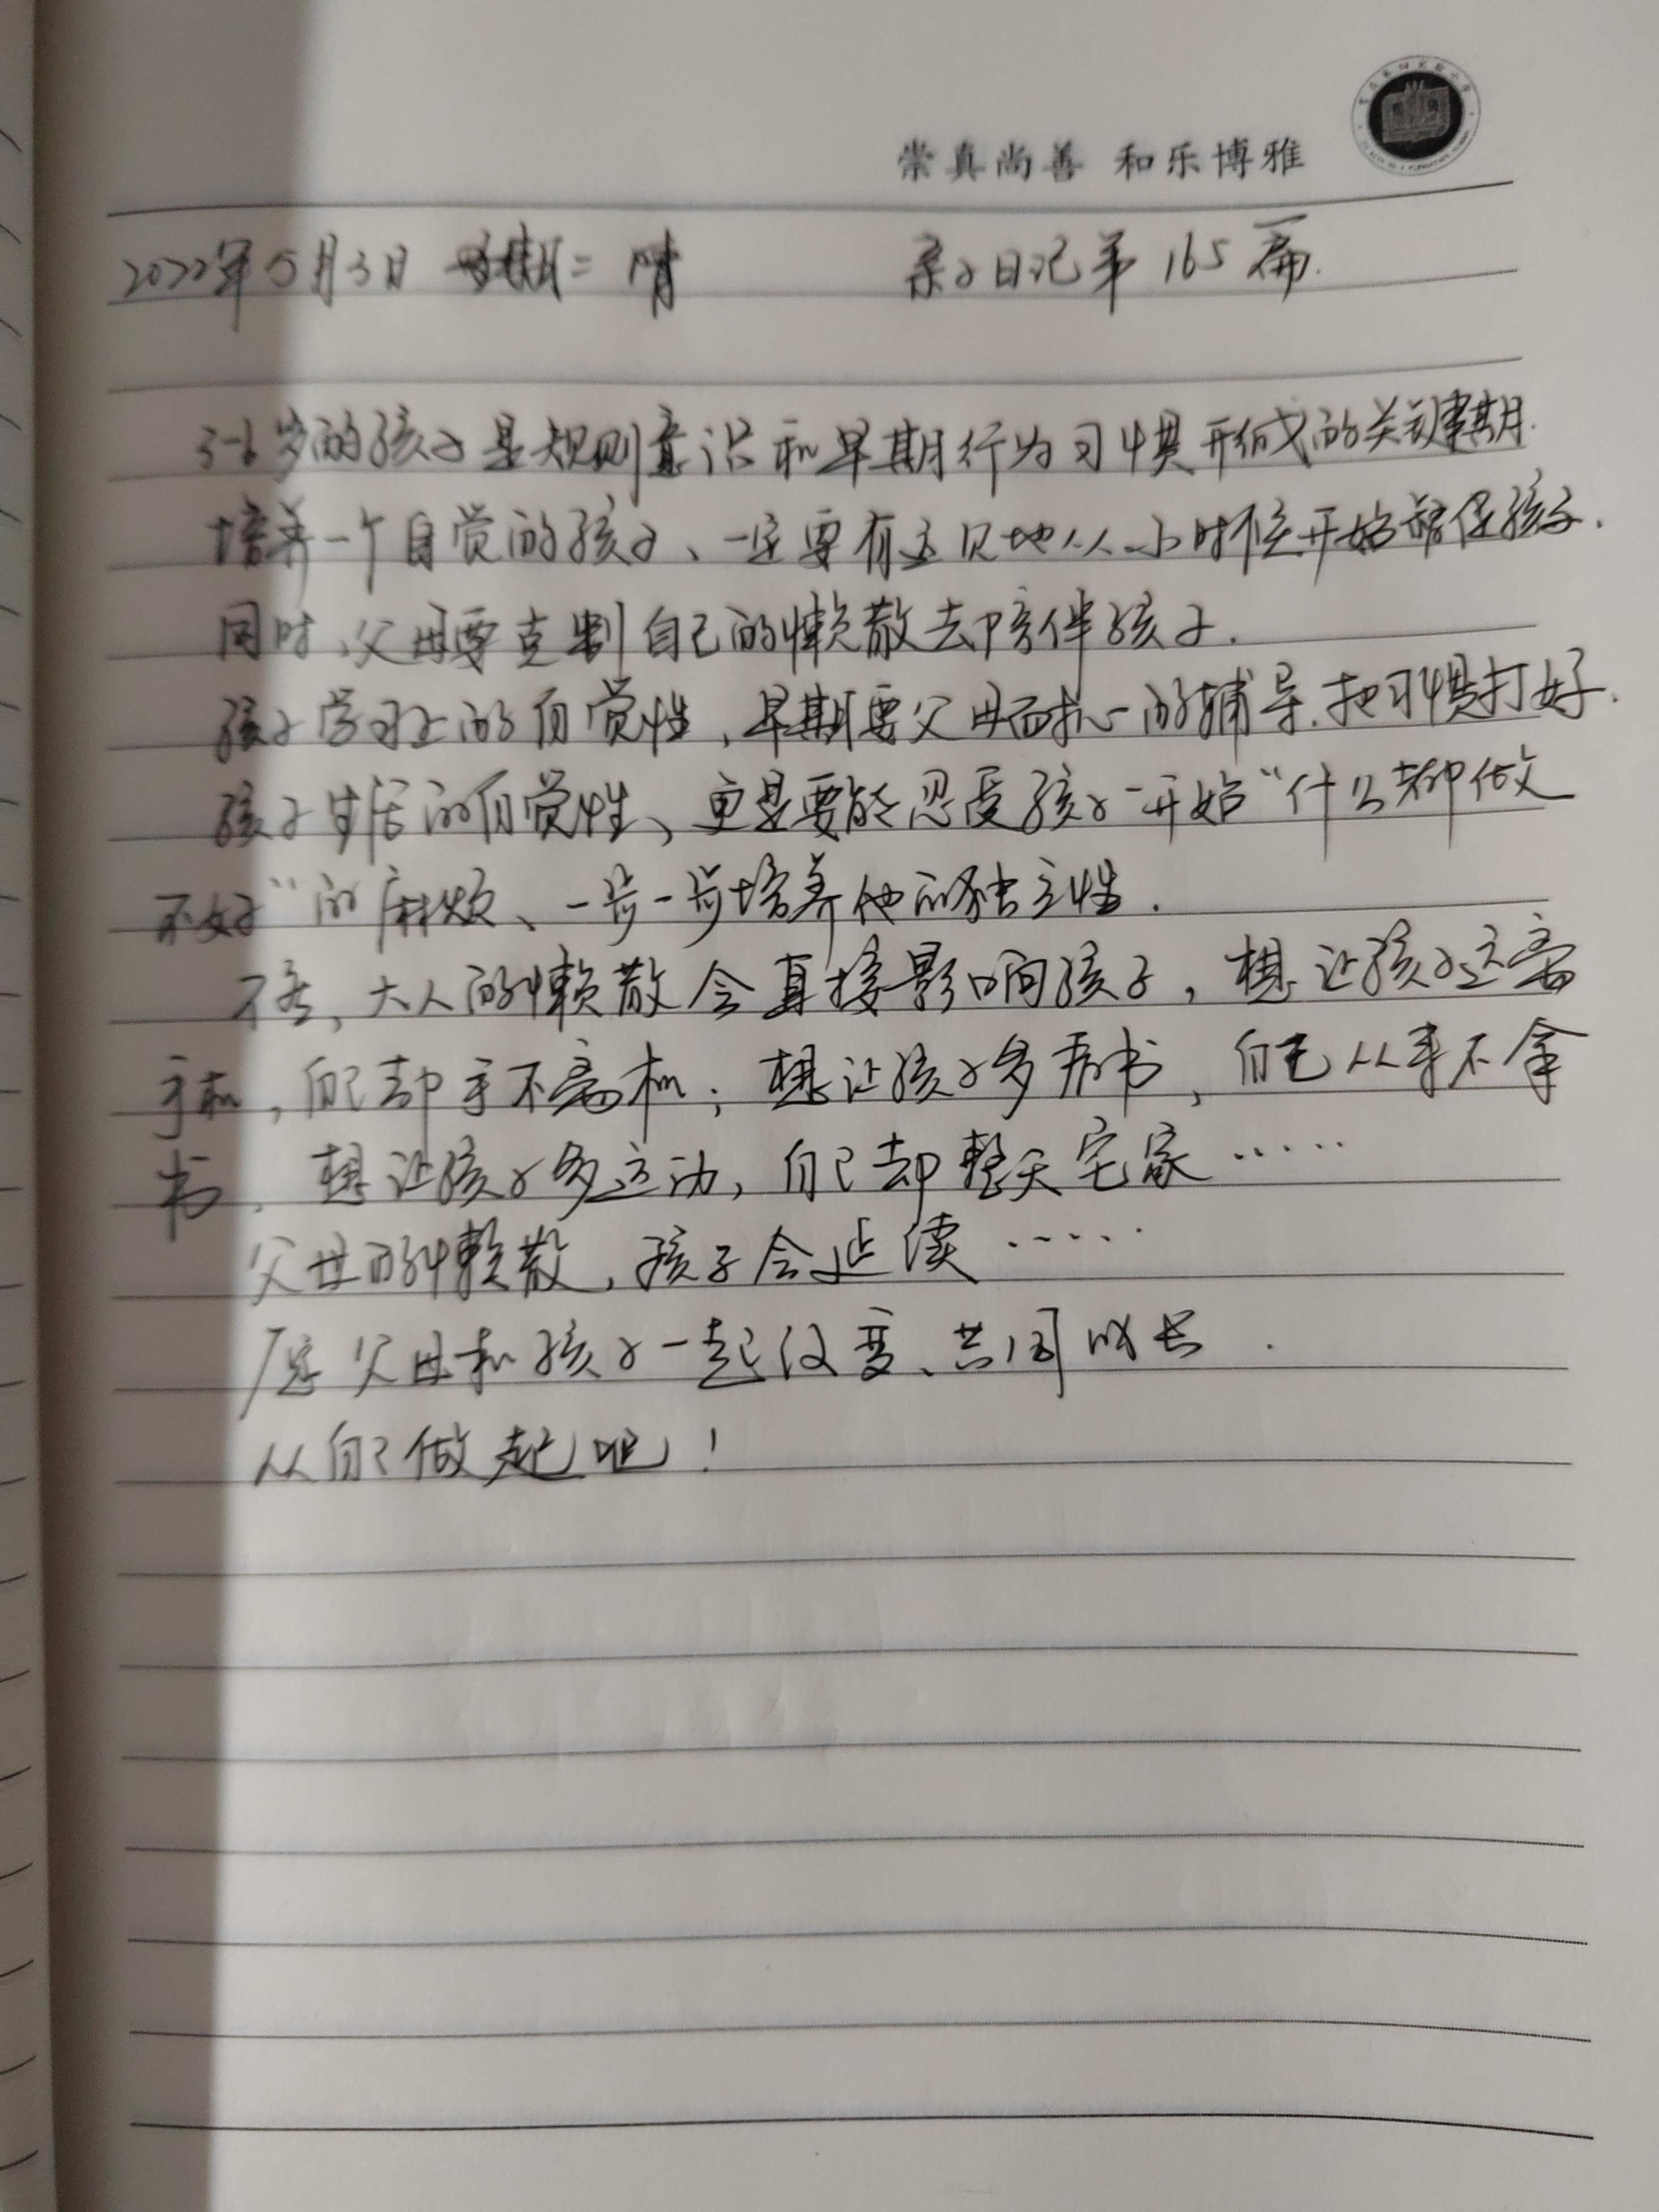 崇真尚善 和乐博雅
2022年5月3日 星期二 晴 亲子日记第165篇.
3-6岁的孩子是规则意识和早期行为习惯形成的关键期.
培养一个自觉的孩子、一定要有远见地从小时候开始 孩子.
同时、父母要克制自己的懒散去陪伴孩子.
孩子学习上的自觉性，早期要父母耐心的辅导.把习惯打好.
孩子生活的自觉性、更是要能忍受孩子一开始“什么都做
不好”的麻烦、一步一步培养他的独立性.
不然，大人的懒散会直接影响孩子，想让孩子远离
手机，自己却手不离机；想让孩子多看书，自己从来不拿
书，想让孩子多运动，自己却整天宅家……
父母的懒散，孩子会延续……
愿父母和孩子一起改变、共同成长.
从自己做起吧！